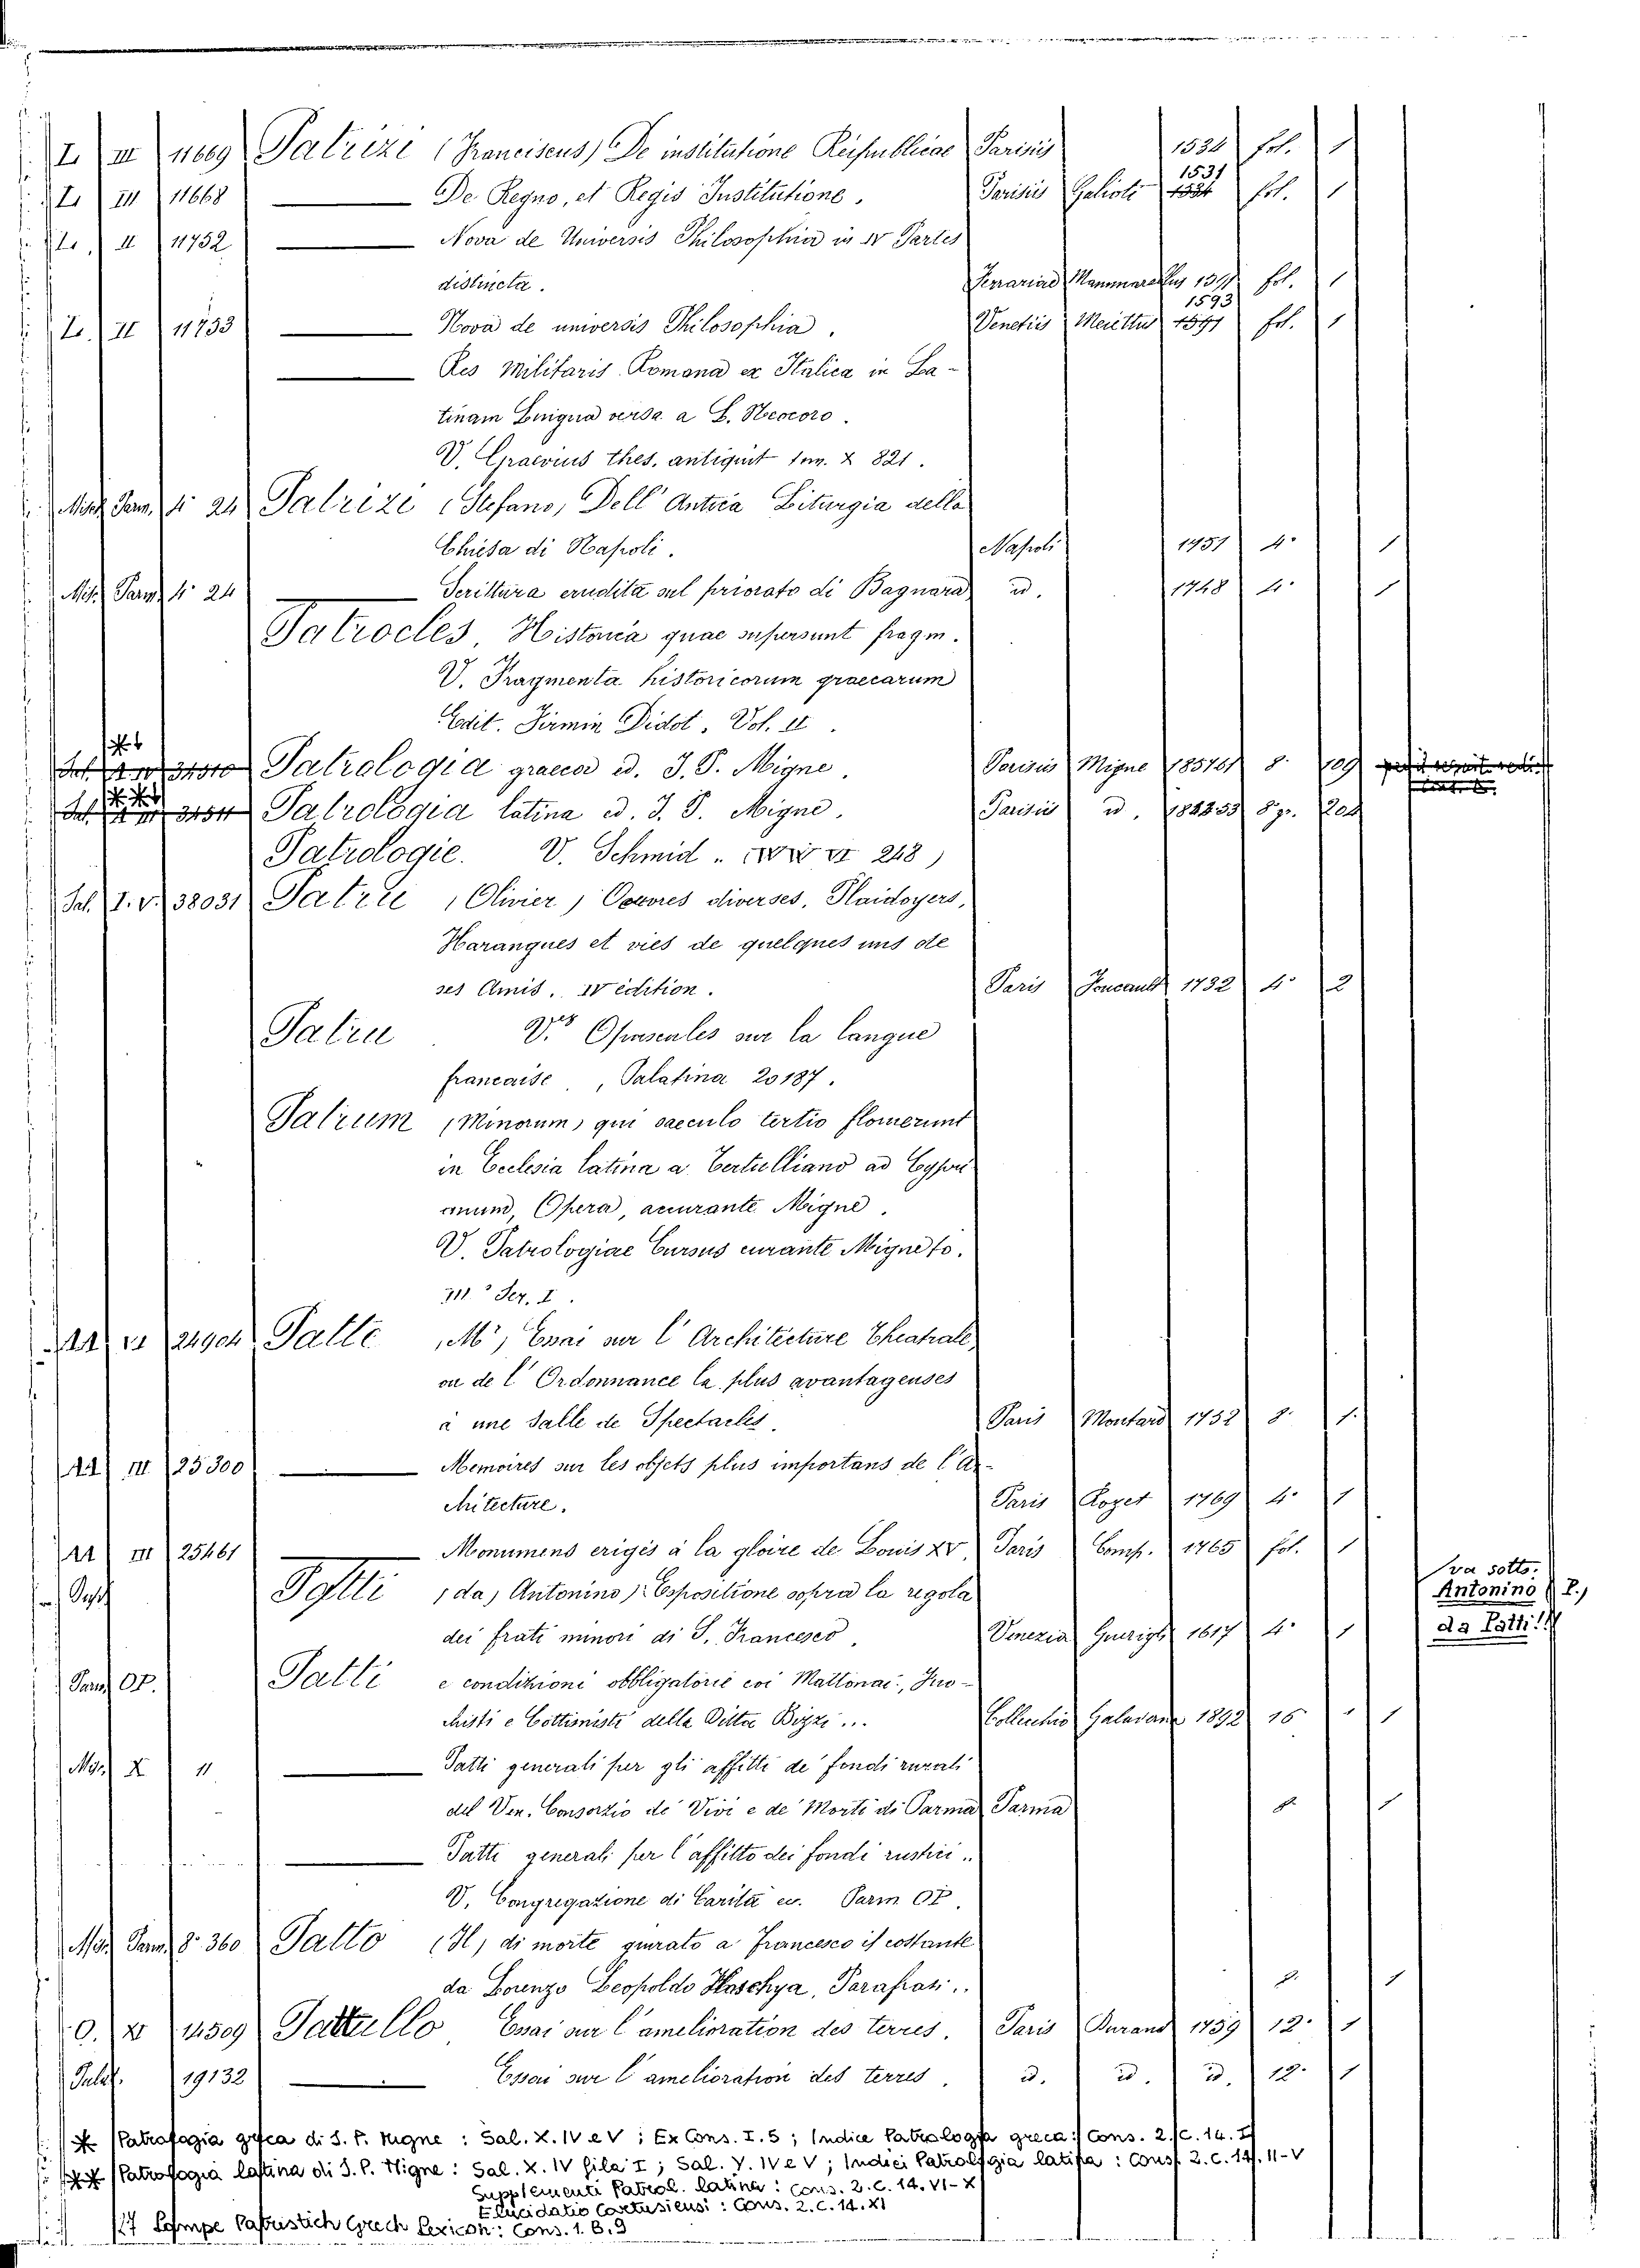 L. III 11669 Patrizi (Franciscus) De institutione Reipublicae Parisiis 1534 fol. 1
L. III 11668 De Regno, et Regis Institutione. Parisiis Galioti 1531 fol. 1
L. II 11752 Nova de Universis Philosophia in IV Partes
distincta. Ferrariae Mammarellus 1591 fol. 1
L. II 11753 Nova de universis Philosophia. Venetiis Meiettus 1593 fol. 1
Res Militaris Romana ex Italica in La-
tinam Lingua versa a L. Neocoro.
V. Graevius thes. antiquit tom. X 821.
Misc. Parm. 4° 24 Patrizi (Stefano) Dell' Antica Liturgia della
Chiesa di Napoli. Napoli 1751 4° 1
Misc. Parm. 4° 24 Scrittura erudita sul priorato di Bagnara id. 1748 4° 1
Patrocles. Historia quae supersunt fragm.
V. Fragmenta historicorum graecarum
Edit. Firmin Didot. Vol. II.
* Patrologia graeca ed. J. P. Migne. Parisiis Migne 1857/61 8° 109
** Patrologia latina ed. J. P. Migne. Parisiis id. 8° gr. 204
Patrologie. V. Schmid 248)
Sal. I. V. 38031 Patru (Olivier) Oeuvres diverses, Plaidoyers,
Harangues et vies de quelques uns de
ses Amis. IV edition. Paris Foucault 1732 4° 2
Patru V. Opuscules sur la langue
francaise, Palatina 20187.
Patrum (Minorum) qui saeculo tertio floruerunt
in Ecclesia latina a Tertulliano ad Cypri
anum, Opera, accurante Migne.
V. Patrologiae Cursus curante Migne to.
III° Ser. I.
AA VI 24904 Patte (Mr) Essai sur l'Architecture Theatrale,
ou de l'Ordonnance la plus avantageuses
à une Salle de Spectacles. Paris Moutard 1782 8° 1.
AA III 25300 Memoires sur les objets plus importans de l'Ar-
chitecture. Paris Rozet 1769 4° 1
AA III 25461 Monumens erigés à la gloire de Louis XV Paris Comp. 1765 fol. 1
Patti (da) Antonino): Espositione sopra la regola
dei frati minori di S. Francesco. Venezia Guerigli 1617 4° 1
va sotto:
Antonino (P.)
da Patti!!
Parm. OP. Patti e condizioni obbligatorie coi Mattonai, Fuo-
chisti e Cottimisti della Ditta Bizzi... Collecchio Galavani 1892 16 1
Misc. X 11 Patti generali per gli affitti de' fondi rurali
del Ven. Consorzio de' Vivi e de' Morti di Parma Parma 8° 1
Patti generali per l'affitto dei fondi rustici..
V. Congregazione di Carità ec. Parm OP.
Misc. Parm. 8° 360 Patto (Il) di morte giurato a Francesco is costante
da Lorenzo Leopoldo Haschya, Parafrasi.. 8° 1
O. XI 14509 Pattullo Essai sur l'amelioration des terres. Paris Durand 1759 12° 1
Palat. 19132 Essai sur l'amelioration des terres. id. id. id. 12° 1
* Patrologia greca di J. P. Migne : Sal. X. IV e V ; Ex Cons. I. 5 ; Indice Patrologia greca : Cons. 2. C. 14. I
** Patrologia latina di J. P. Migne : Sal. X. IV fila I ; Sal. Y. IV e V ; Indici Patrologia latina : Cons. 2. C. 14. II-V
Supplementi Patrol. latina : Cons. 2. C. 14. VI-X
Elucidatio Cartusiensi : Cons. 2. C. 14. XI
Lampe Patristich Grech Lexicon : Cons. 1. B. 9